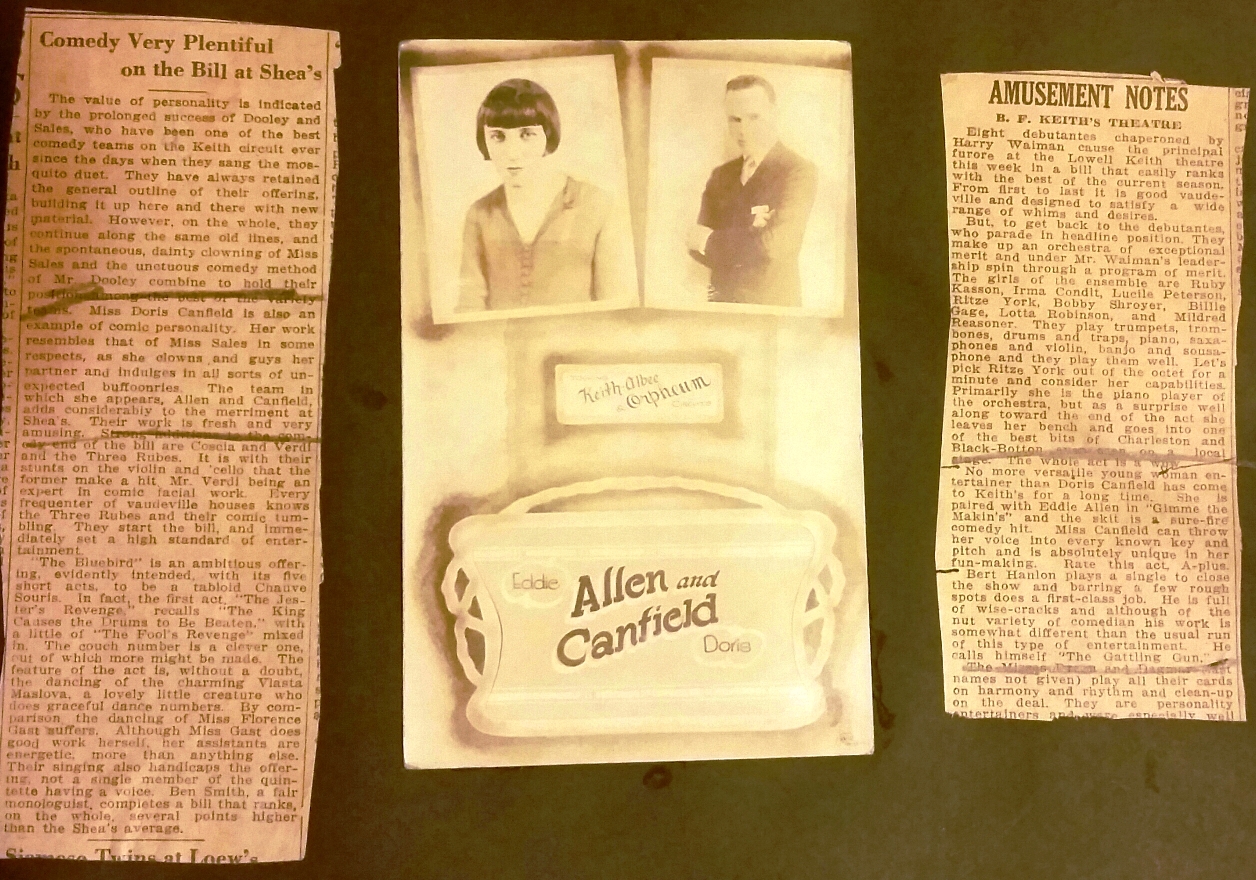 Comedy Very Plentiful
on the Bill at Shea's
The value of personality is indicated
by the prolonged success of Dooley and
Sales, who have been one of the best
comedy teams on the Keith circuit ever
since the days when they sang the mos-
quito duet. They have always retained
the general outline of their offering,
building it up here and there with new
material. However, on the whole, they
continue along the same old lines, and
the spontaneous, dainty clowning of Miss
Sales and the unctuous comedy method
of Mr. Dooley combine to hold their
position among the best of the variety
teams. Miss Doris Canfield is also an
example of comic personality. Her work
resembles that of Miss Sales in some
respects, as she clowns and guys her
partner and indulges in all sorts of un-
expected buffoonries. The team in
which she appears, Allen and Canfield,
adds considerably to the merriment at
Shea's. Their work is fresh and very
amusing. Strong the com-
edy end of the bill are Coscia and Verdi
and the Three Rubes. It is with their
stunts on the violin and 'cello that the
former make a hit, Mr. Verdi being an
expert in comic facial work. Every
frequenter of vaudeville houses knows
the Three Rubes and their comic tum-
bling. They start the bill, and imme-
diately set a high standard of enter-
tainment.
"The Bluebird" is an ambitious offer-
ing, evidently intended, with its five
short acts, to be a tabloid Chauve
Souris. In fact, the first act, "The Jes-
ter's Revenge," recalls "The King
Causes the Drums to Be Beaten," with
a little of "The Fool's Revenge" mixed
in. The couch number is a clever one,
out of which more might be made. The
feature of the act is, without a doubt,
the dancing of the charming Vlasta
Maslova, a lovely little creature who
does graceful dance numbers. By com-
parison, the dancing of Miss Florence
Gast suffers. Although Miss Gast does
good work herself, her assistants are
energetic, more than anything else.
Their singing also handicaps the offer-
ing, not a single member of the quin-
tette having a voice. Ben Smith, a fair
monologuist, completes a bill that ranks,
on the whole, several points higher
than the Shea's average.
Siamese Twins at Loew's
Keith-Albee
& Orpheum
Circuits
Eddie
Allen and
Canfield
Doris
AMUSEMENT NOTES
B. F. KEITH'S THEATRE
Eight debutantes chaperoned by
Harry Waiman cause the principal
furore at the Lowell Keith theatre
this week in a bill that easily ranks
with the best of the current season.
From first to last it is good vaude-
ville and designed to satisfy a wide
range of whims and desires.
But, to get back to the debutantes,
who parade in headline position. They
make up an orchestra of exceptional
merit and under Mr. Waiman's leader-
ship spin through a program of merit.
The girls of the ensemble are Ruby
Kasson, Irma Condit, Lucile Peterson,
Ritze York, Bobby Shroyer, Billie
Gage, Lotta Robinson, and Mildred
Reasoner. They play trumpets, trom-
bones, drums and traps, piano, saxa-
phones and violin, banjo and sousa-
phone and they play them well. Let's
pick Ritze York out of the octet for a
minute and consider her capabilities.
Primarily she is the piano player of
the orchestra, but as a surprise well
along toward the end of the act she
leaves her bench and goes into one
of the best bits of Charleston and
Black-Botton ever seen on a local
stage. The whole act is a
No more versatile young woman en-
tertainer than Doris Canfield has come
to Keith's for a long time. She is
paired with Eddie Allen in "Gimme the
Makin's" and the skit is a sure-fire
comedy hit. Miss Canfield can throw
her voice into every known key and
pitch and is absolutely unique in her
fun-making. Rate this act, A-plus.
Bert Hanlon plays a single to close
the show and barring a few rough
spots does a first-class job. He is full
of wise-cracks and although of the
nut variety of comedian his work is
somewhat different than the usual run
of this type of entertainment. He
calls himself "The Gattling Gun."
The Misses and
names not given) play all their cards
on harmony and rhythm and clean-up
on the deal. They are personality
entertainers and were especially well